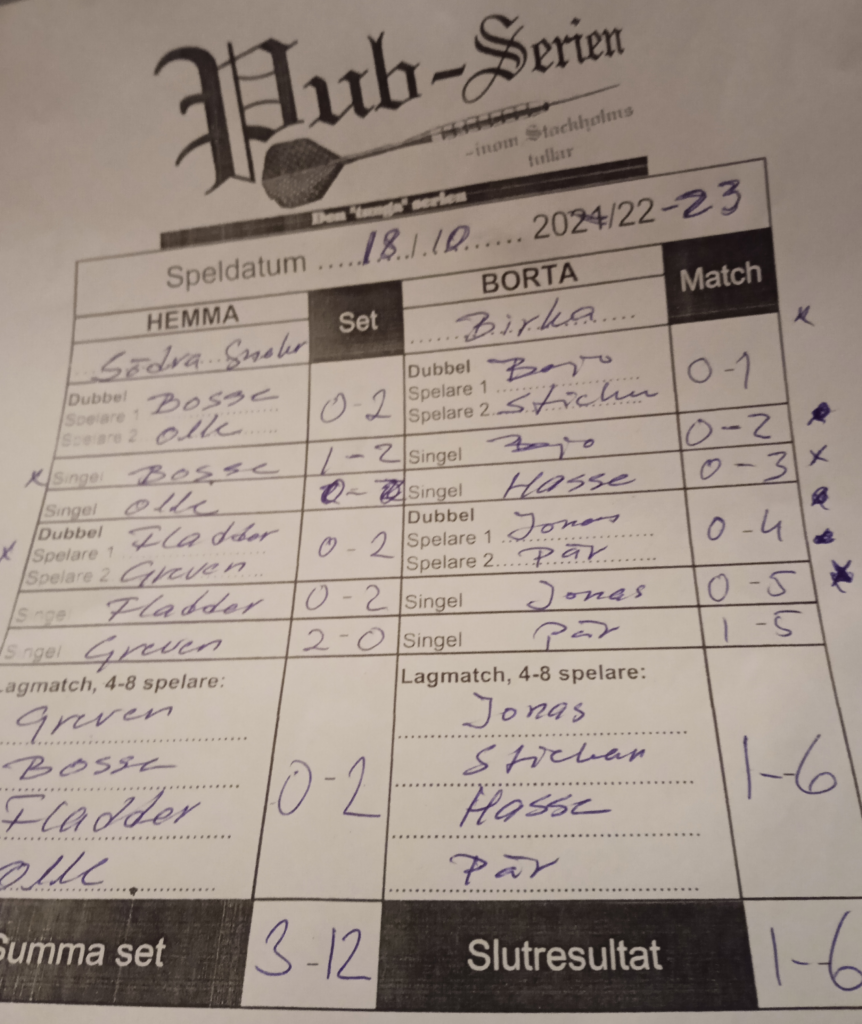 Pub-Serien
-inom Stockholms
tullar
Den "tunga" serien
Speldatum .....18./.10...... 2021/22-23
HEMMA Set BORTA Match
Södra ......Birka.....
Dubbel
Spelare 1 Bosse 0-2 Dubbel Bajo 0-1
Spelare 2 Olle Spelare 1
Spelare 2 Stickan
Singel Bosse 1-2 Singel Bajo 0-2
Singel Olle 0-2 Singel Hasse 0-3
Dubbel Fladder 0-2 Dubbel Jonas 0-4
Spelare 1 Spelare 1
Spelare 2 Greven Spelare 2 Pär
Singel Fladder 0-2 Singel Jonas 0-5
Singel Greven 2-0 Singel Pär 1-5
Lagmatch, 4-8 spelare: Lagmatch, 4-8 spelare:
Greven Jonas
Bosse 0-2 Stickan 1-6
Fladder Hasse
Olle Pär
Summa set 3-12 Slutresultat 1-6